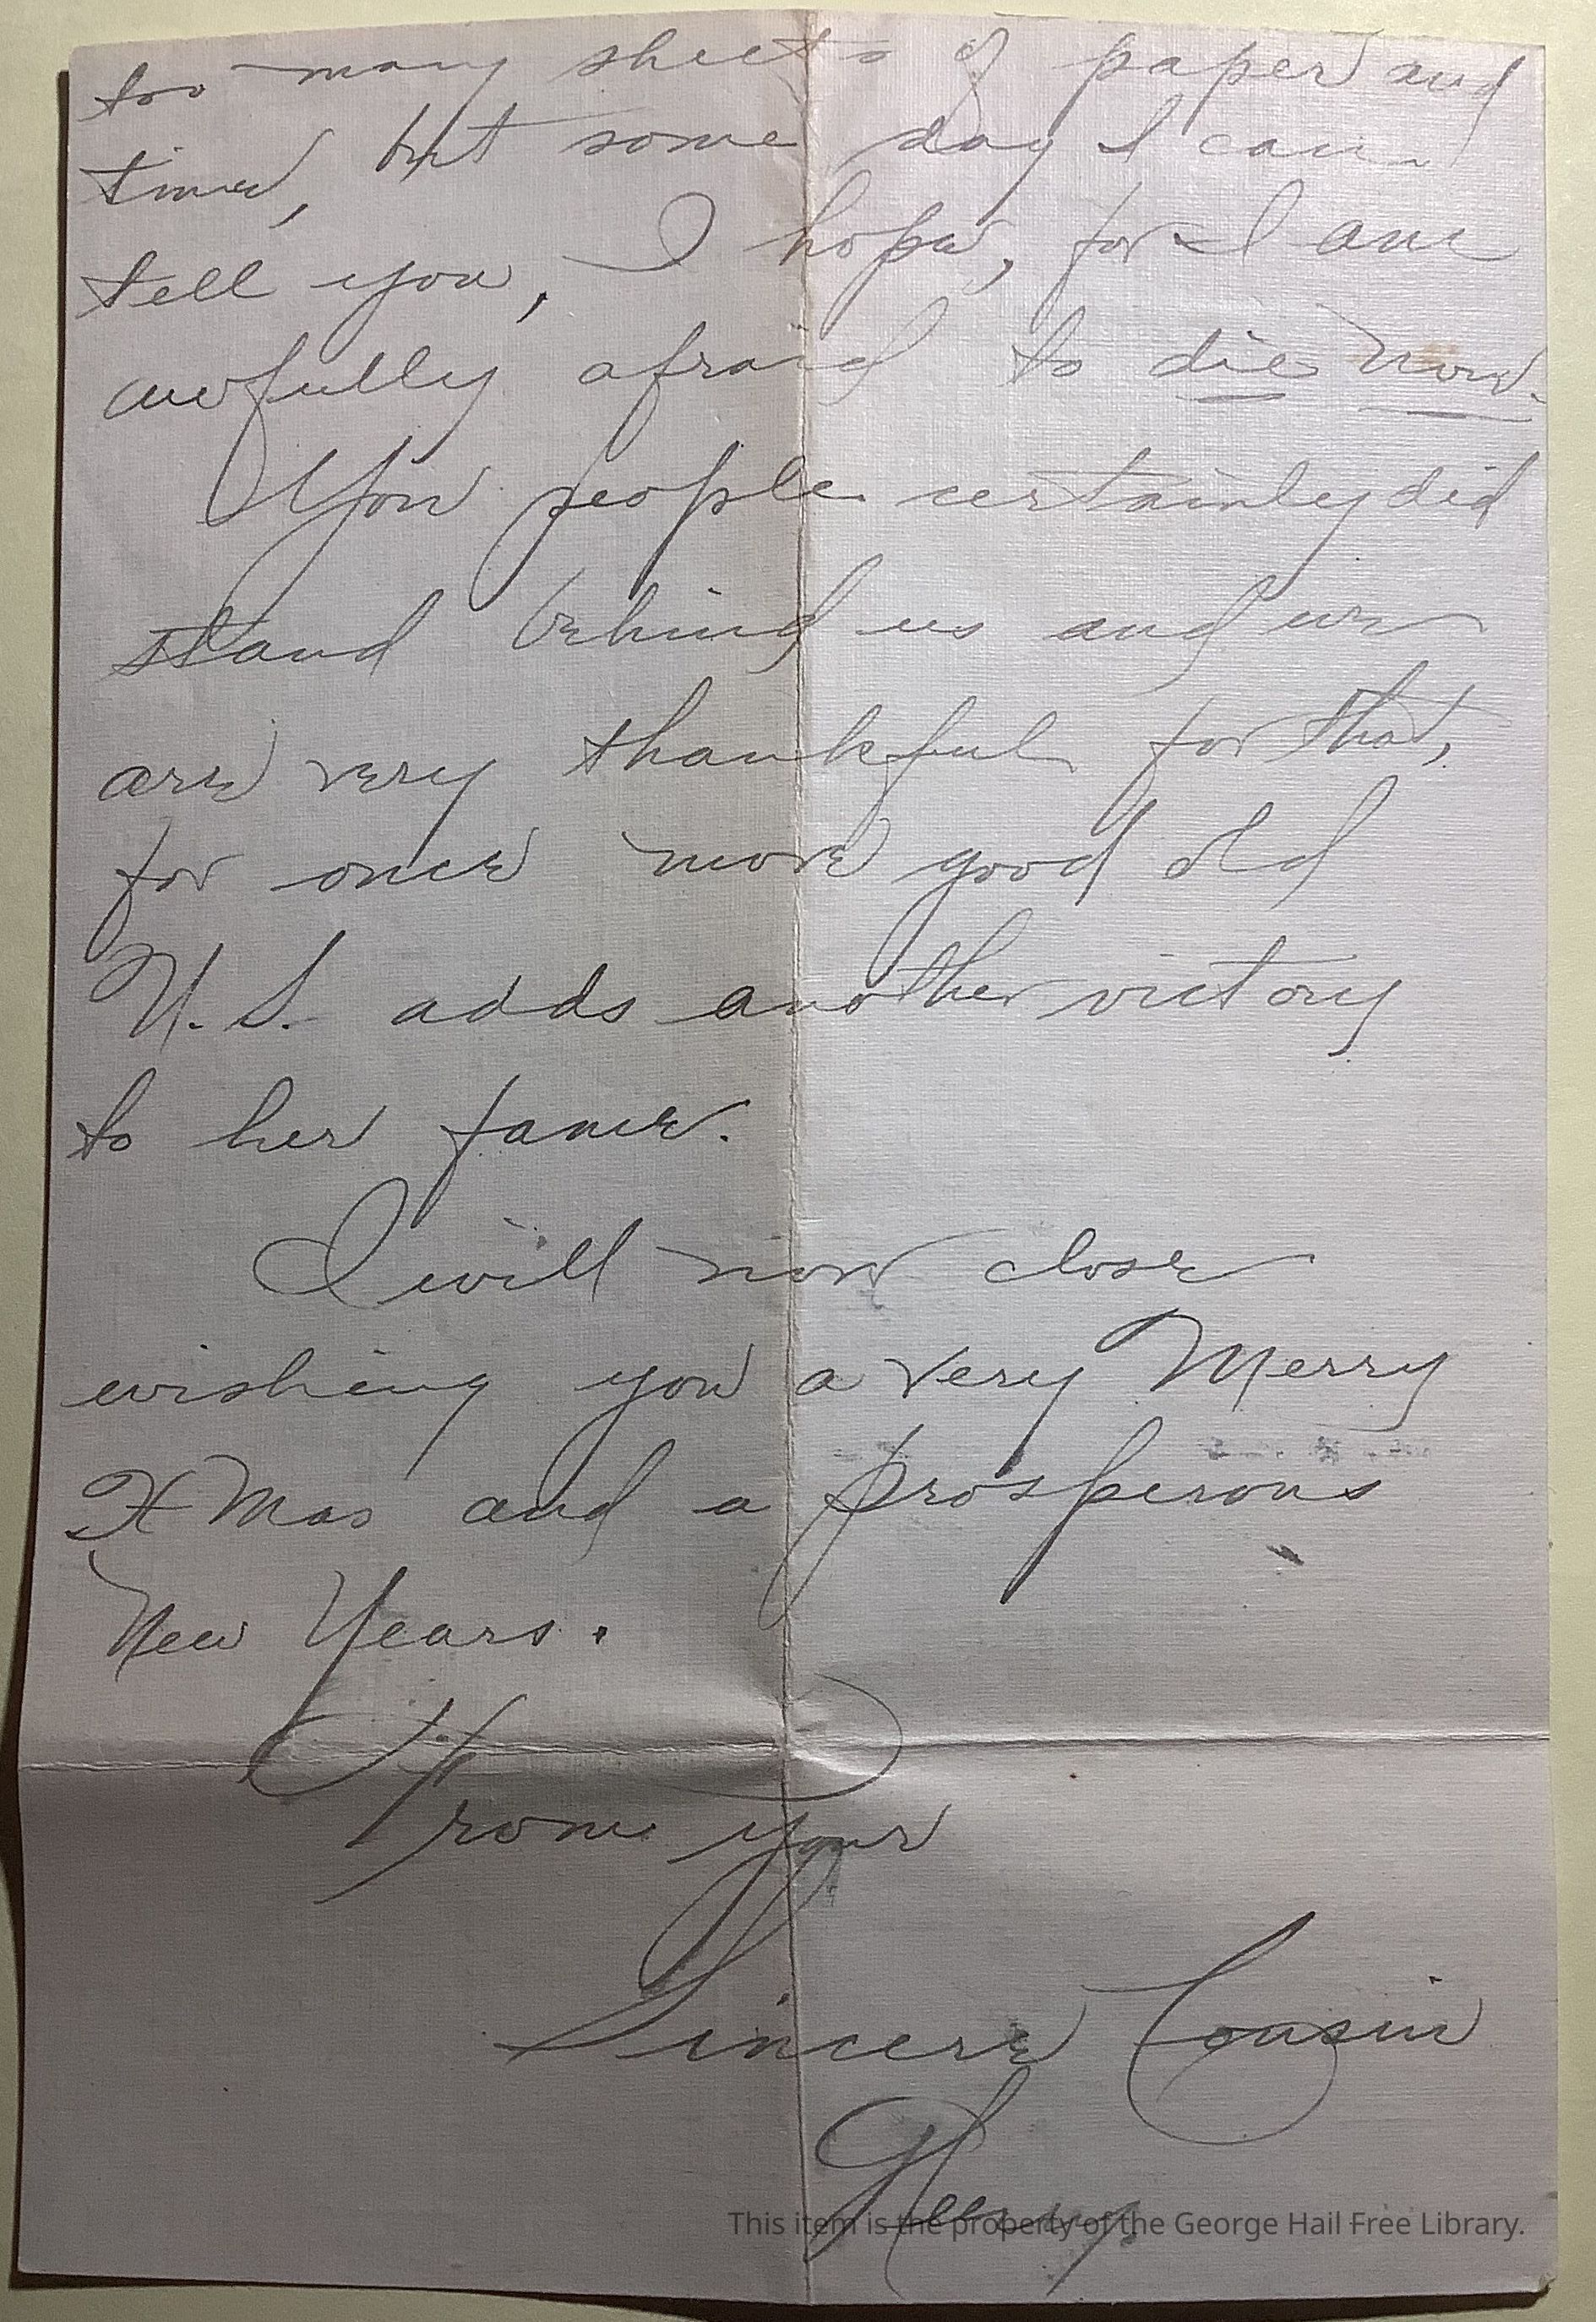 too many sheets of paper and
time, but some day I can
tell you, I hope, for I am
awfully afraid to die now.
You people certainly did
stand behind us and we
are very thankful for that,
for once more good old
U.S. adds another victory
to her fame.
I will now close
wishing you a very Merry
XMas and a prosperous
New Years.
From your
Sincere Cousin
Henry.
This item is the property of the George Hail Free Library.